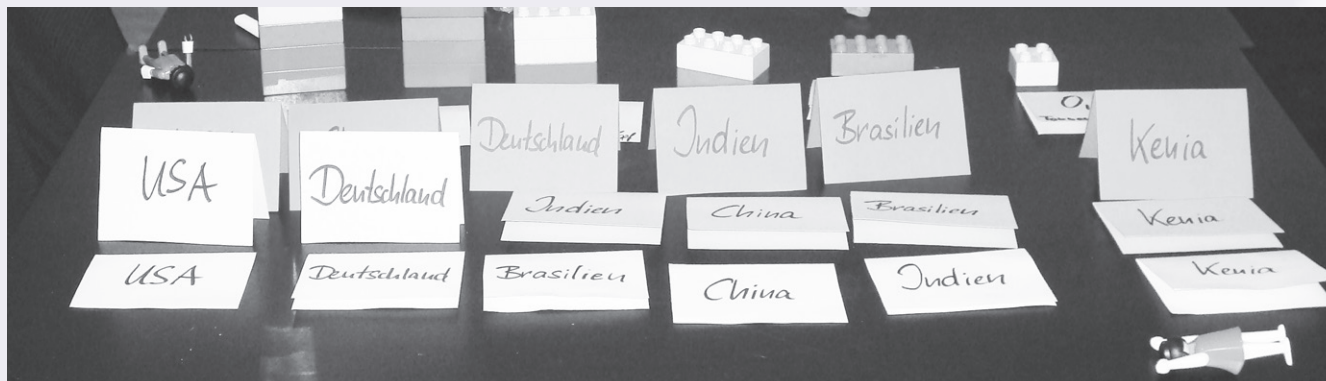 Deutschland
Indien
Brasilien
Kenia
USA
Deutschland
Indien
China
Brasilien
Kenia
USA
Deutschland
Brasilien
China
Indien
Kenia